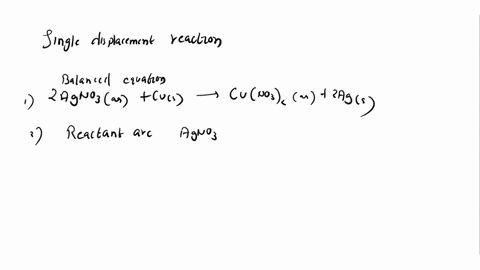 Single displacement reaction
Balanced equation
1) 2AgNO3(aq) + Cu(s) → Cu(NO3)2 (aq) + 2Ag(s)
2) Reactant are AgNO3